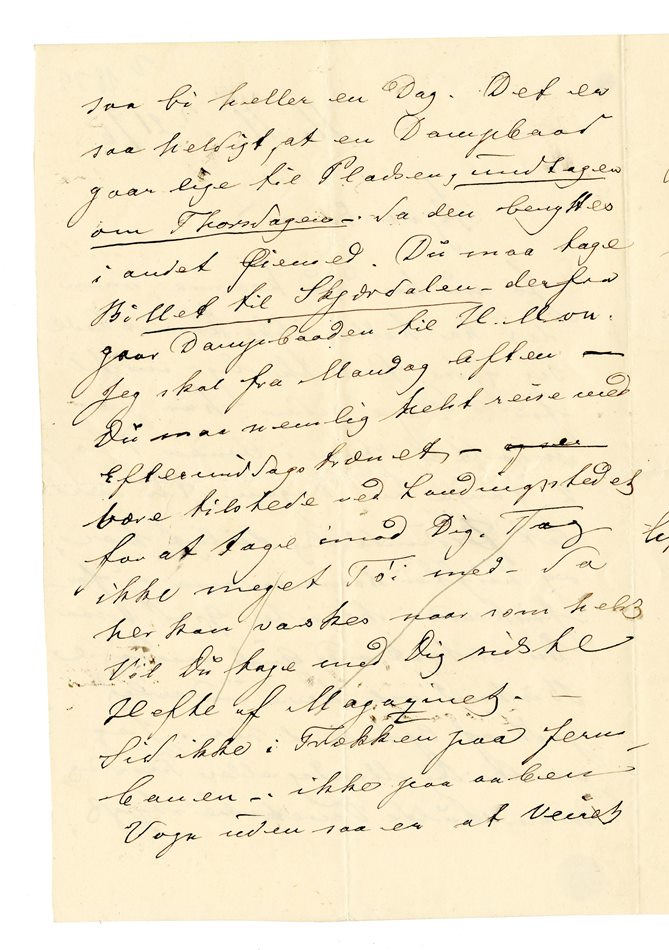 saa bi heller en Dag. Det er
saa heldigt, at en Dampbaad
gaar lige til Pladsen, undtagen
om Thorsdagen – da den benyttes
i andet Øiemed. Du maa tage
Billet til Skjærdalen – derfra
gaar Dampbaaden til H. Mon.
Jeg skal fra Mandag Aften –
Du maa nemlig helst reise med
Eftermiddagstrænet, –
være tilstede ved Landingsstedet
for at tage imod Dig. Tag
ikke meget Tøi med – da
her kan vaskes naar som helst
Vil Du tage med Dig sidste
Hefte af Magazinet. –
Sid ikke i Trækken paa Jern-
banen –. ikke paa aaben
Vogn uden saa er at Veiret